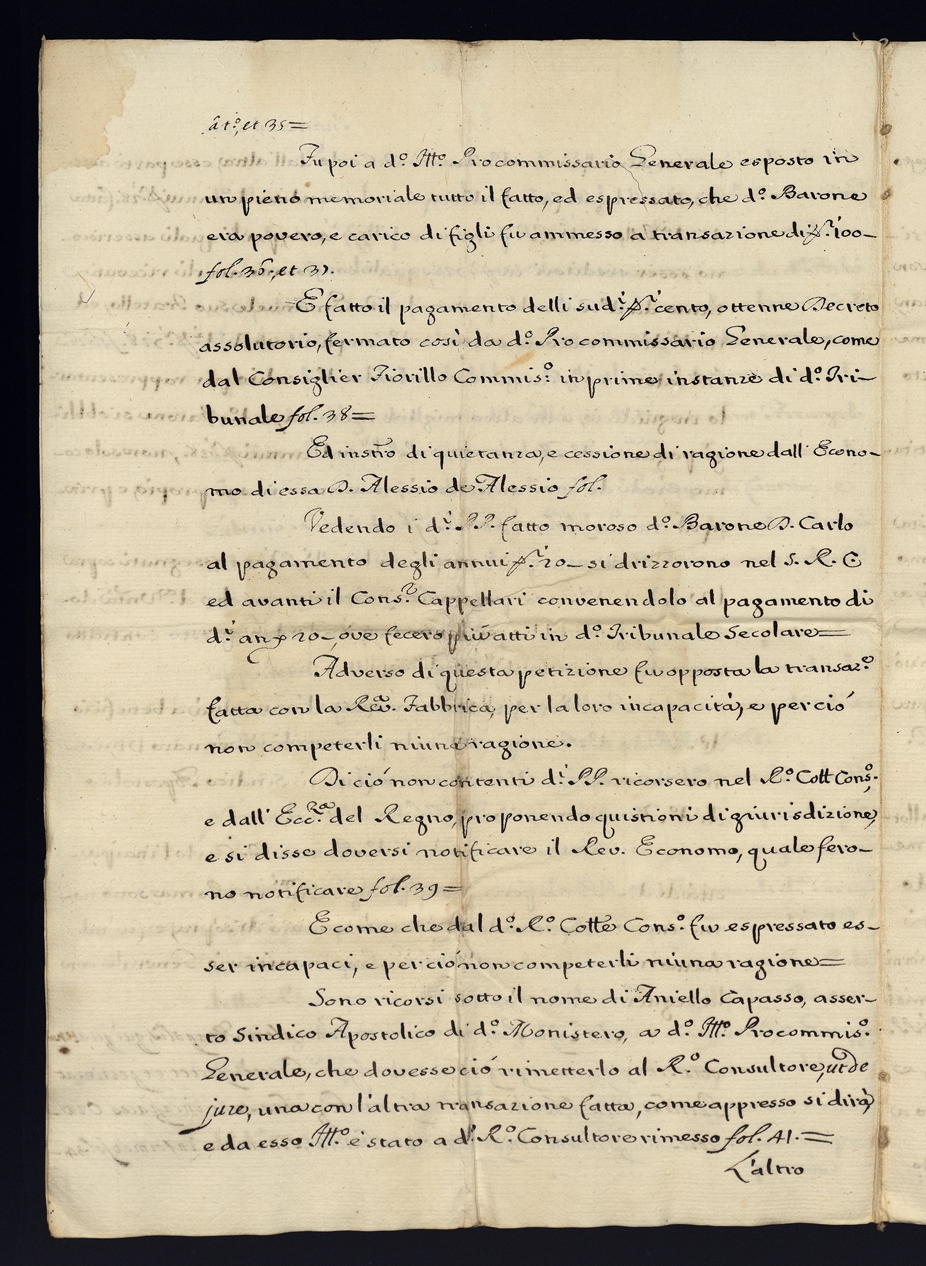 à t.º, et 35=
Fu poi a d.º Ill.º Procommissario Generale esposto in
un pieno memoriale tutto il fatto, ed espressato, che d.º Barone
era povero, e carico di figli fu ammesso a transazione di 100_
fol. 36., et 37.
E' fatto il pagamento delli sud.ⁱ cento, ottenne Decreto
assolutorio, fermato così da d.º Procommissario Generale, come
dal Consiglier Fiorillo Commis.º in prime instanze di d.º Tri-
bunale fol. 38=
Ed instro di quietanza, e cessione di ragione dall'Econo-
mo di essa D. Alessio de Alessio fol.
Vedendo i d.ⁱ PP. fatto moroso d.º Barone D. Carlo
al pagamento degli annui 20_ si drizzorono nel S. R. C
ed avanti il Cons.º Cappellari convenendolo al pagamento di
d.ⁱ an. 20_, ove fecero più atti in d.º Tribunale Secolare=
Adverso di questa petizione fu opposta la transaz.º
fatta con la Rev. Fabbrica, per la loro incapacità, e perciò
non competerli niuna ragione.
Di ciò non contenti d.ⁱ PP. ricorsero nel R.º Coll Cons.º
e dall'Ecc.za del Regno, proponendo quistioni di giurisdizione,
e si disse doversi notificare il Rev. Economo, quale fero-
no notificare fol. 39=
E come che dal d.º R.º Colle Cons.º fu espressato es-
ser incapaci, e perciò non competerli niuna ragione=
Sono ricorsi sotto il nome di Aniello Capasso, asser-
to Sindico Apostolico di d.º Monistero, a d.º Ill.º Procommis.º
Generale, che dovesse ciò rimetterlo al R.º Consultore, ut de
jure, una con l'altra transazione fatta, come appresso si dirà,
e da esso Ill.º è stato a d.º R.º Consultore rimesso fol. 41.=
L'altro